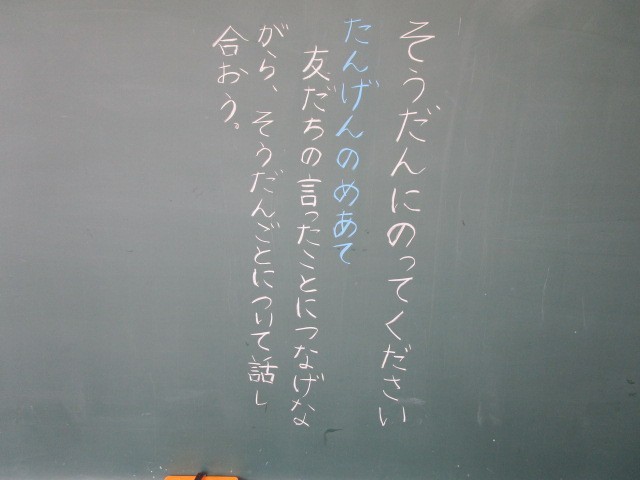 そうだんにのってください
たんげんのめあて
友だちの言ったことにつなげな
がら、そうだんごとについて話し
合おう。